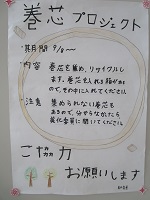 巻芯プロジェクト
期間 9/8〜
内容 巻芯を集め、リサイクルし
ます。巻芯を入れる箱があ
るので、その中に入れてください。
注意 集められない巻芯も
あるので、分からなかったら
美化委員に聞いてください。
ご協力
お願いします